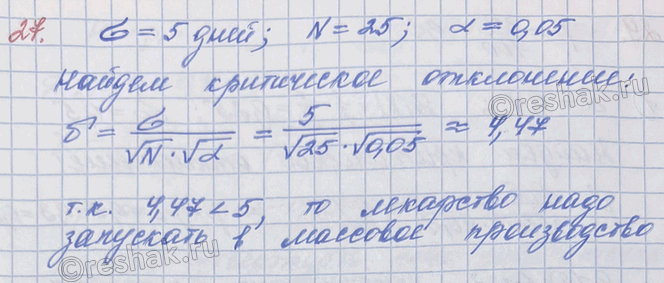 27. σ = 5 дней; N = 25; α = 0,05
Найдем критическое отклонение,
δ = σ / (√N · √α) = 5 / (√25 · √0,05) ≈ 4,47
т.к. 4,47 < 5, то лекарство надо
запускать в массовое производство
©reshak.ru
©reshak.ru
©reshak.ru